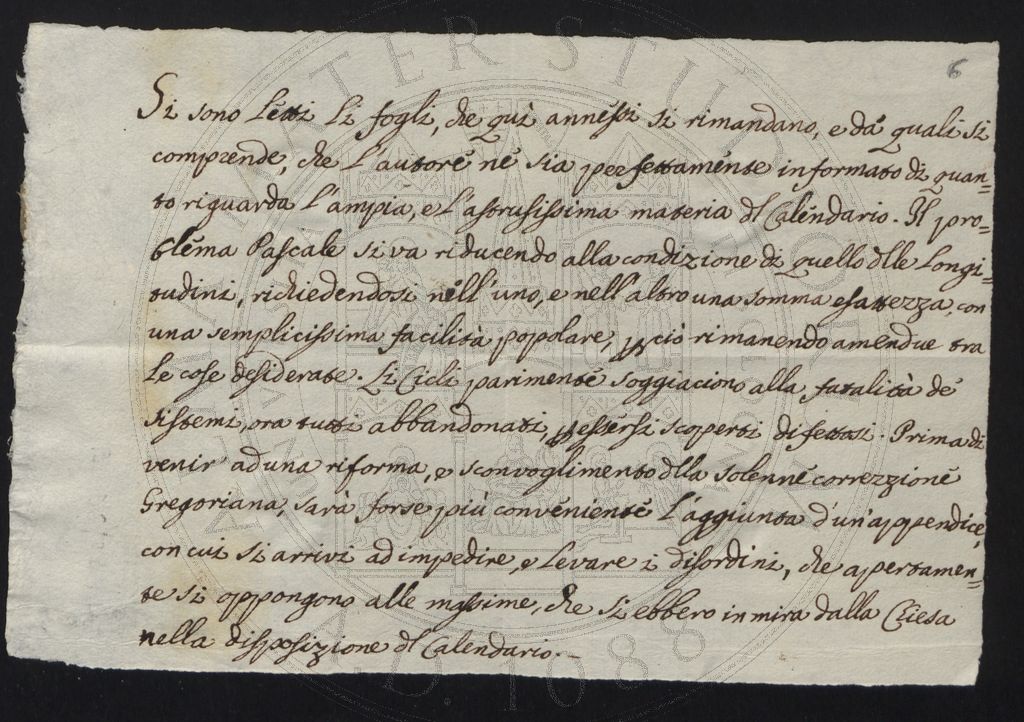 6
Si sono letti li fogli, che quì annessi si rimandano, e da' quali si
comprende, che l'autore ne sia perfettamente informato di quan=
to riguarda l'ampia, e l'astrusissima materia dl Calendario. Il pro=
blema Pascale si va riducendo alla condizione di quello dlle Longi=
tudini, richiedendosi nell'uno, e nell'altro una somma esattezza, con
una semplicissima facilità popolare, p ciò rimanendo amendue tra
le cose desiderate. Li Cicli parimente soggiaciono alla fatalità de'
sistemi, ora tutti abbandonati, p essersi scoperti difettosi. Prima di
venir ad una riforma, e sconvoglimento dlla solenne correzzione
Gregoriana, sarà forse più conveniente l'aggiunta d'un'appendice,
con cui si arrivi ad impedire, e levare i disordini, che apertamen=
te si oppongono alle massime, che si ebbero in mira dalla Chiesa
nella disposizione dl Calendario.
ALMA MATER STUDIORUM
A.D. 1088